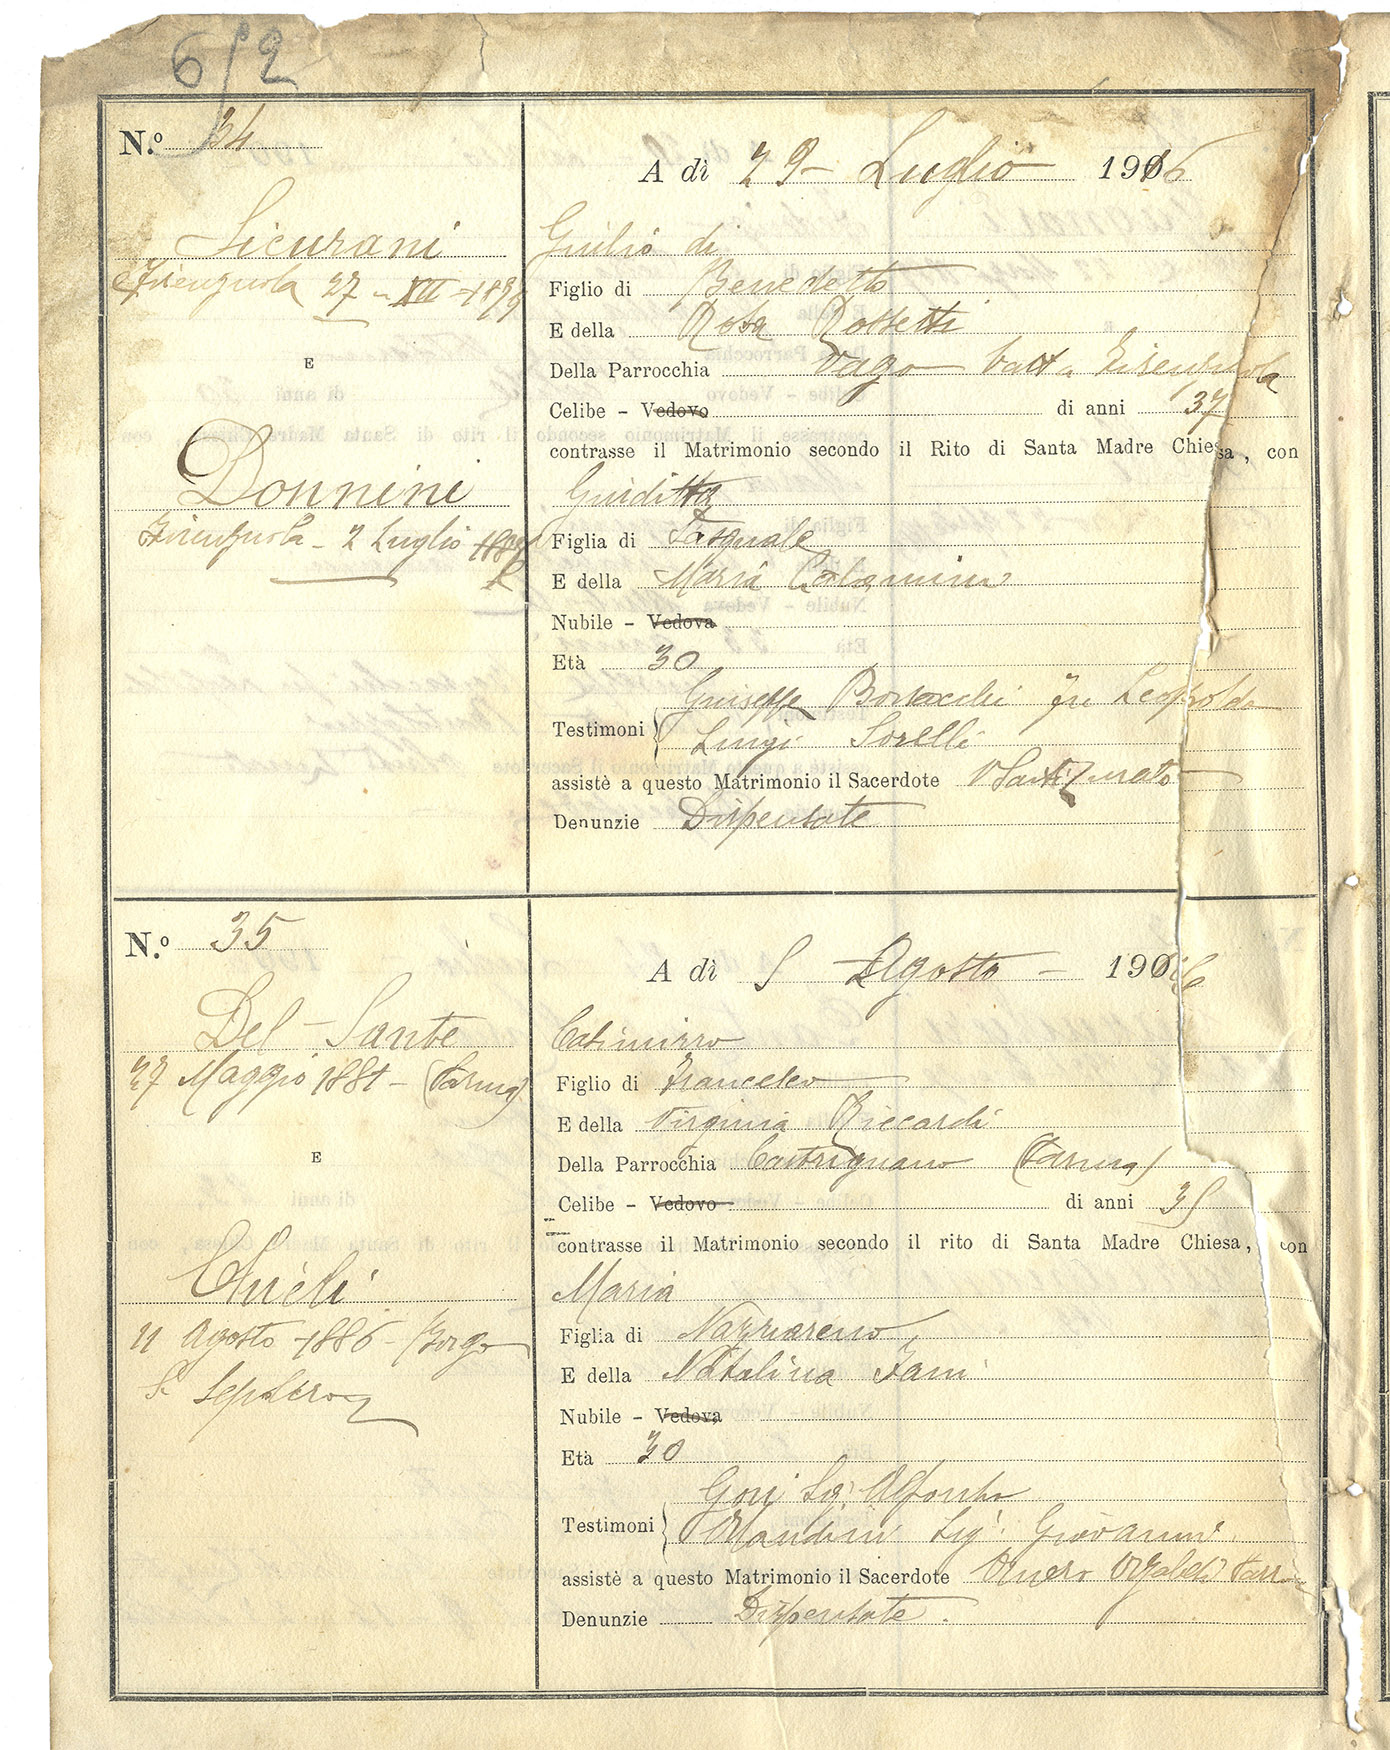 6/2
N.º 34
A dì 29 - Luglio 1916
Sicurani
Firenzuola 27 - XII - 1879
E
Donnini
Firenzuola - 2 Luglio
Giulio di
Figlio di Benedetto
E della Rosa Rossetti
Della Parrocchia Vago Firenzuola
Celibe - Vedovo di anni 37
contrasse il Matrimonio secondo il Rito di Santa Madre Chiesa, con
Giuditta
Figlia di Pasquale
E della Maria
Nubile - Vedova
Età 30
Giuseppe fu Leopoldo
Testimoni
Luigi Sorelli
assistè a questo Matrimonio il Sacerdote
Denunzie Dispensate
N.º 35
A dì 5 Agosto - 1916
Del - Sante
27 Maggio 1881 - (Parma)
E
Chieli
11 Agosto - 1886 - Borgo
S. Sepolcro
Casimirro
Figlio di Francesco
E della Virginia Riccardi
Della Parrocchia Castrignano (Parma)
Celibe - Vedovo di anni 35
contrasse il Matrimonio secondo il rito di Santa Madre Chiesa, con
Maria
Figlia di Nazzareno
E della Natalina Fani
Nubile - Vedova
Età 30
Gori Sig. Alfonso
Testimoni
Orlandini Sig. Giovanni
assistè a questo Matrimonio il Sacerdote
Denunzie Dispensate.